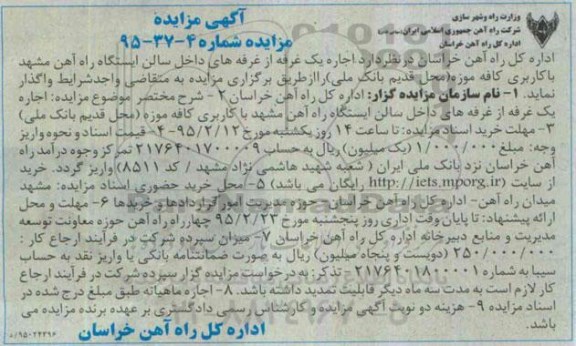 وزارت راه وشهر سازی
شرکت راه آهن جمهوری اسلامی ایران
اداره کل راه آهن خراسان
آگهی مزایده
مزایده شماره ۴-۳۷-۹۵
اداره کل راه آهن خراسان درنظردارد اجاره یک غرفه از غرفه های داخل سالن ایستگاه راه آهن مشهد
باکاربری کافه موزه(محل قدیم بانک ملی)راازطریق برگزاری مزایده به متقاضی واجدشرایط واگذار
نماید. ۱- نام سازمان مزایده گزار: اداره کل راه آهن خراسان ۲- شرح مختصر موضوع مزایده: اجاره
یک غرفه از غرفه های داخل سالن ایستگاه راه آهن مشهد با کاربری کافه موزه (محل قدیم بانک ملی)
۳- مهلت خرید اسناد مزایده: تا ساعت ۱۴ روز یکشنبه مورخ ۹۵/۲/۱۲ ۴- قیمت اسناد و نحوه واریز
وجه: مبلغ ۱/۰۰۰/۰۰۰ (یک میلیون) ریال به حساب ۲۱۷۶۴۰۱۷۰۰۰۰۹ تمرکز وجوه درآمد راه
آهن خراسان نزد بانک ملی ایران ( شعبه شهید هاشمی نژاد مشهد / کد ۸۵۱۱) واریز گردد. خرید
از سایت (http://iets.mporg.ir رایگان می باشد) ۵- محل خرید حضوری اسناد مزایده: مشهد
میدان راه آهن- اداره کل راه آهن خراسان - حوزه مدیریت امور قراردادها و خریدها ۶- مهلت و محل
ارائه پیشنهاد: تا پایان وقت اداری روز پنجشنبه مورخ ۹۵/۲/۲۳ چهارراه راه آهن حوزه معاونت توسعه
مدیریت و منابع دبیرخانه اداره کل راه آهن خراسان ۷- میزان سپرده شرکت در فرآیند ارجاع کار :
۲۵۰/۰۰۰/۰۰۰ (دویست و پنجاه میلیون) ریال به صورت ضمانتنامه بانکی یا واریز نقد به حساب
سیبا به شماره ۲۱۷۶۴۰۱۸۰۰۰۰۱ -تذکر: به درخواست مزایده گزار سپرده شرکت در فرآیند ارجاع
کار لازم است به مدت سه ماه دیگر قابلیت تمدید داشته باشد. ۸- اجازه ماهیانه طبق مبلغ درج شده در
اسناد مزایده ۹- هزینه دو نوبت آگهی مزایده و کارشناس رسمی دادگستری بر عهده برنده مزایده می
باشد.
اداره کل راه آهن خراسان